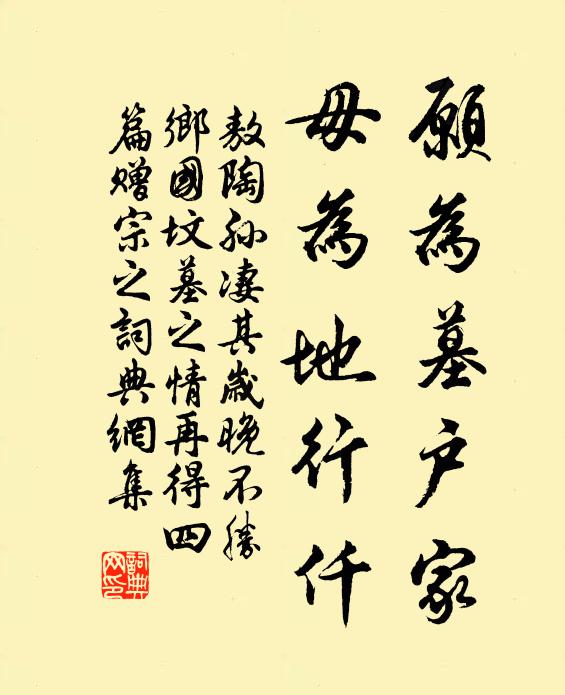 願為墓户家
毋為地行仟
敖陶孙凄其歲晚不勝
鄉國坟墓之情再得四
篇赠宗之詞典網集
詞典
网印